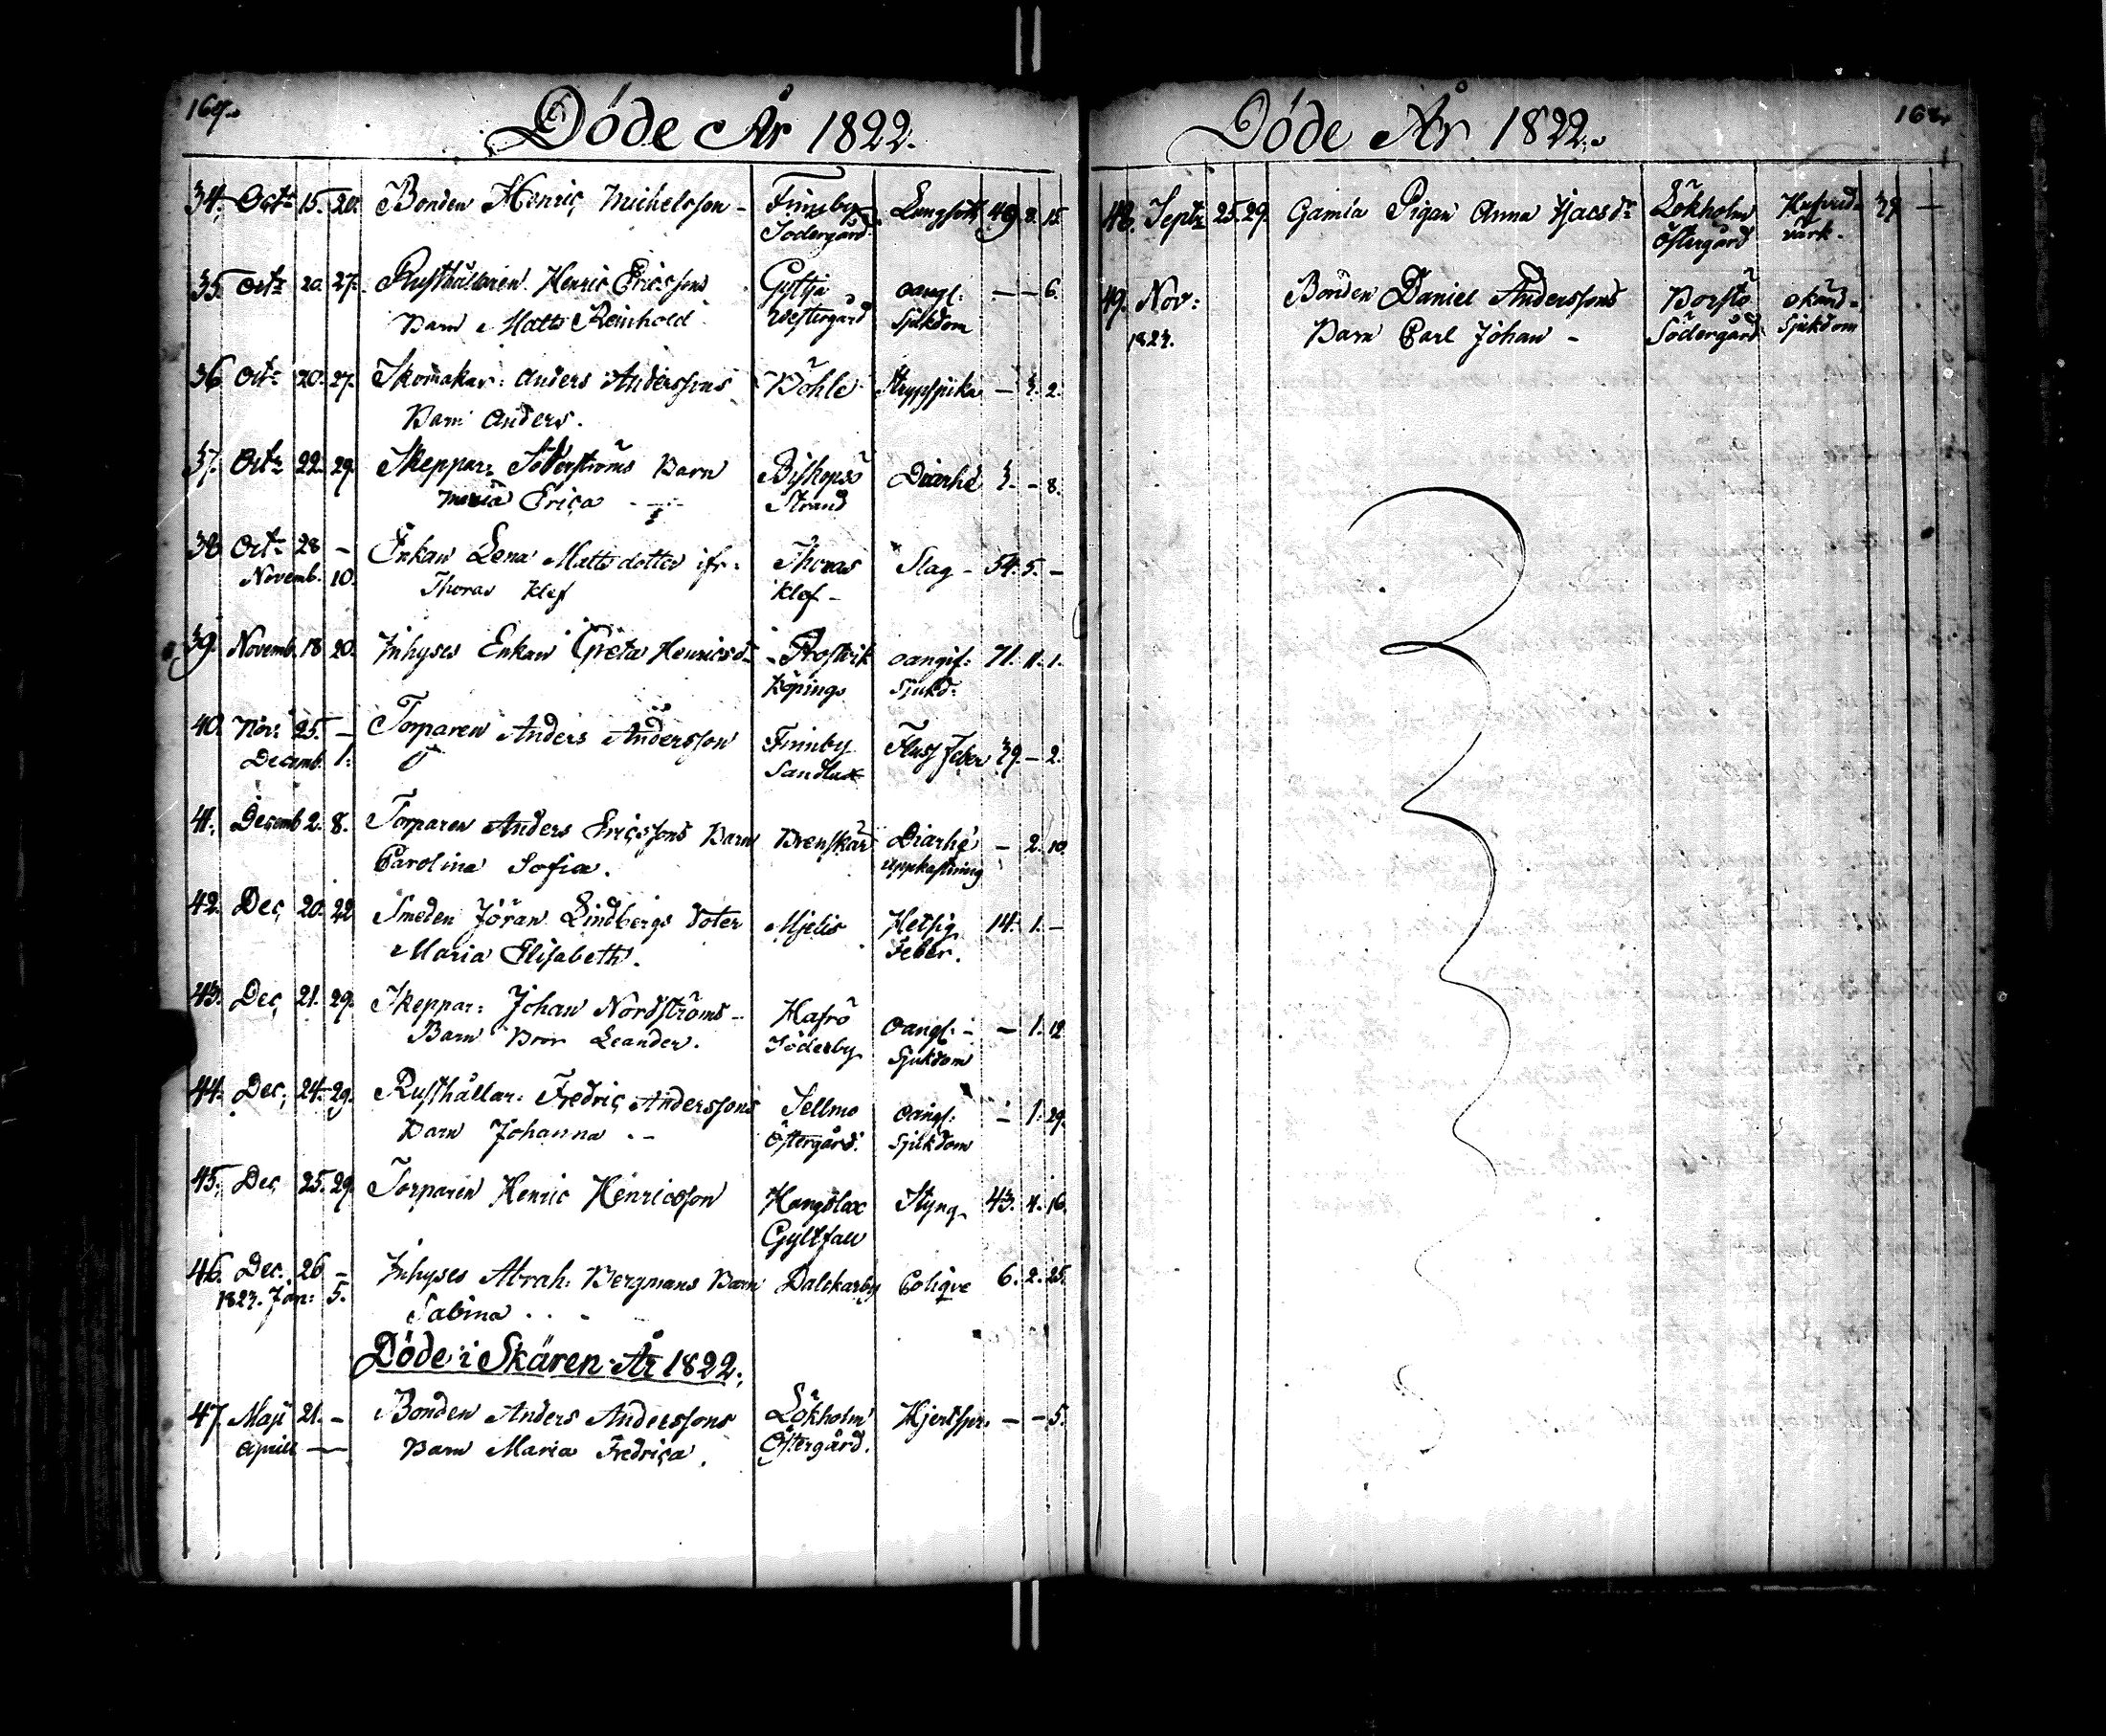 Döde År 1822.
34. Octr 15. 20. Bonden Henric Michelsson - Finnby Lungsot 49. 2. 15.
Södergård.
35. Octr 20. 27. Rusthållaren Henric Ericssons Gyttja oangf: — — 6.
Barn Matts Reinhold Westergård Sjukdom
36. Octr 20. 27. Skomakar: Anders Anderssons Böhle Strypsjuka — 3. 2.
Barn Anders.
37. Octr 22. 29. Skeppar: Söderströms Barn Bishopsö Diarhé 3. - 8.
Maria Erica Strand
38. Octr 28 — Enkan Lena Mattsdotter ifr: Thoras Slag - 54. 5. —
Novemb. 10. Thoras Klef Klef -
39. Novemb. 18 20. Inhyses Enkan Greta Henricsd: oangif: 71. 11. 1.
Köpings Sjukd:
40. Nov: 25. — Torparen Anders Andersson Finnby Fluss Feber 39. — 2.
Decemb. 1. Sandlax
41. Decemb 2. 8. Torparen Anders Ericssons Barn Brenskär Diarhé — 2. 10.
Carolina Sofia. uppkastning
42. Dec, 20. 22 Smeden Jöran Lindbergs Doter Mjelis Hetsig 14. 1. —
Maria Elisabeth. Feber.
43. Dec, 21. 29. Skeppar: Johan Nordströms - Hafrö oangf: - — 1. 12
Barn Bror Leander. Söderby Sjukdom
44. Dec, 24. 29. Rusthållar: Fredric Anderssons Sellmo oangf: — 1. 29.
Barn Johanna . - Östergård. Sjukdom
45. Dec, 25. 29. Torparen Henric Henricsson Hangslax Styng 43. 4. 16.
46. Dec. 26 — Inhyses Abrah: Bergmans Barn Dalckarby Colique 6. 2. 25.
1823. Jan: 5. Sabina . . -
Döde i Skären År 1822.
47. Maji 21. — Bonden Anders Anderssons Lökholm Hjertspr. — — 5.
Aprill — Barn Maria Fredrica. Östergård.
Döde År 1822.
48. Septr 25. 29. Gamla Pigan Anna Lökholm Hufvud- 39 —
Östergård värk.
49. Nov: Bonden Daniel Anderssons Borstö okänd-
1823. Barn Carl Johan - Södergård Sjukdom